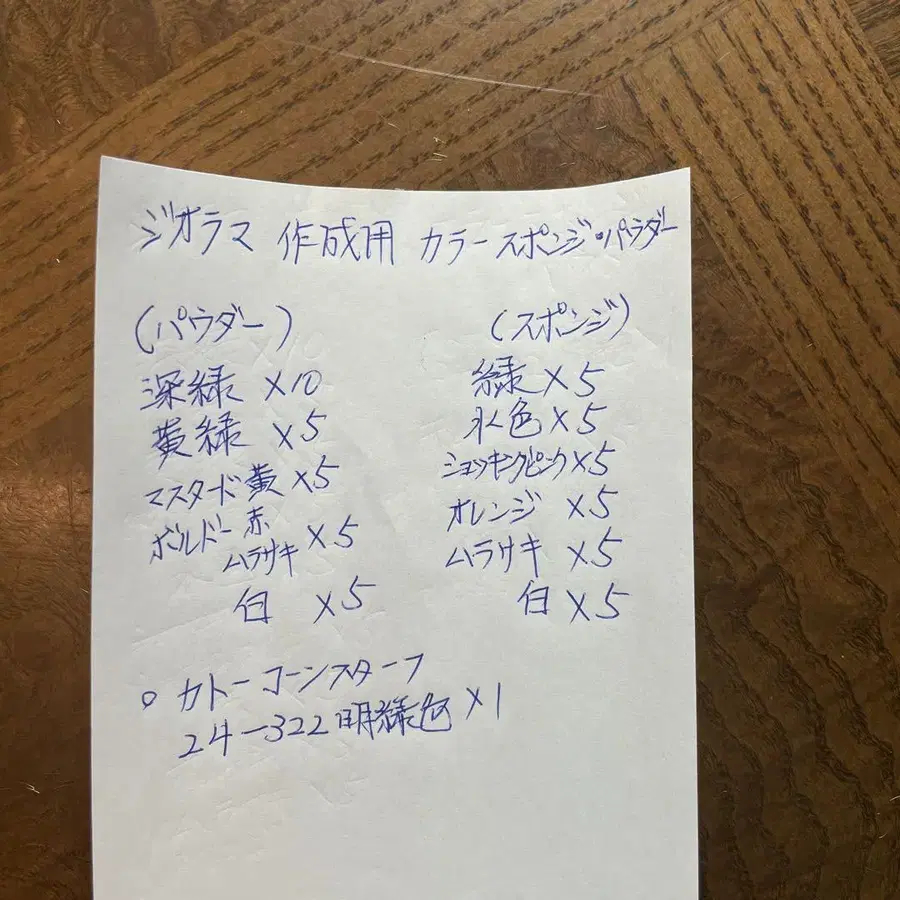 ジオラマ 作成用 カラースポンジ・パウダー
(パウダー)
深緑 ×10
黄緑 ×5
マスタード黄 ×5
ボルドー赤
ムラサキ ×5
白 ×5
(スポンジ)
緑 ×5
水色 ×5
ショッキングピンク ×5
オレンジ ×5
ムラサキ ×5
白 ×5
○ カトーコーンスターフ
24-322明緑色 ×1